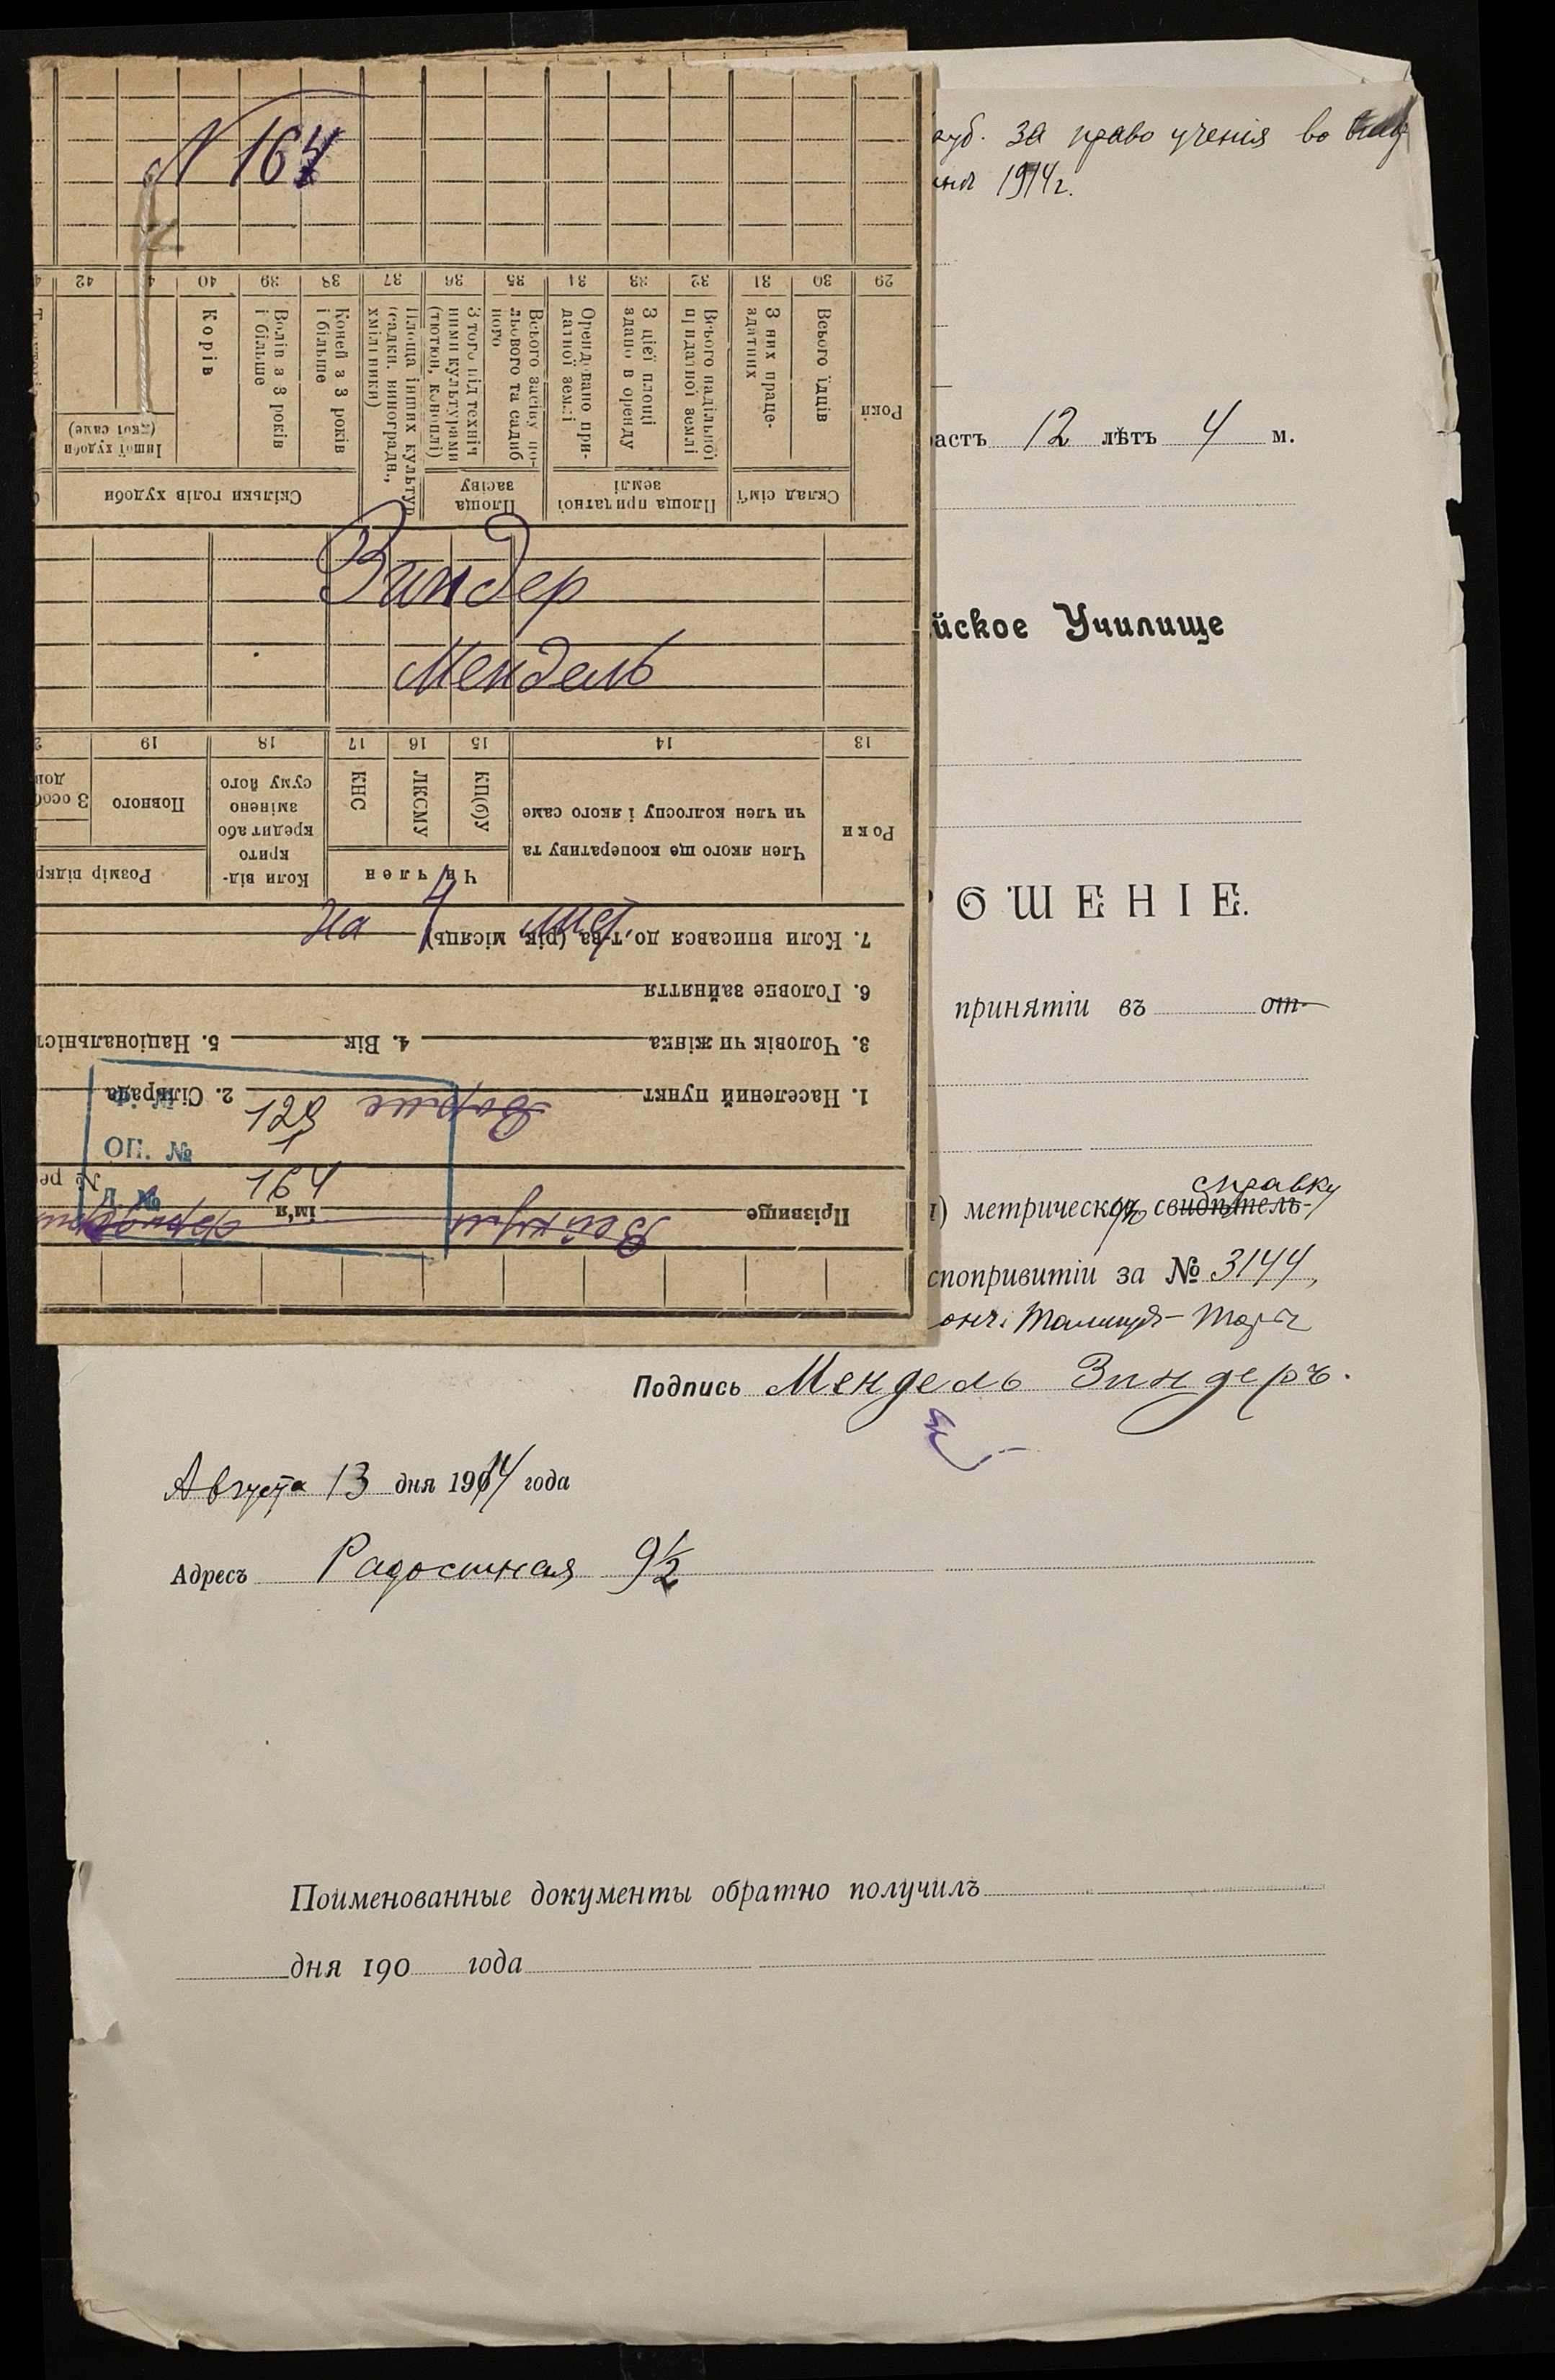 N 164
29 30 31 32 33 34 35 36 37 38 39 40 42
Роки
Всього їдців
З них праце-
здатних
Всього надільної
придатної землі
З цієї площі
здано в оренду
Орендовано при-
датної землі
Всього засіву по-
льового та садиб
ного
З того під техніч
ними культурами
(тютюн, коноплі)
Площа інших культур
(садки, виноградн.,
хмільники)
Коней з 3 років
і більше
Волів з 3 років
і більше
Корів
Іншої худоби
(якої саме)
Склад сім'ї
Площа придатної
землі
Площа
засіву
Скільки голів худоби
Зиндер
Мендель
13 14 15 16 17 18 19
Роки
Член якого ще кооперативу та
чи член колгоспу і якого саме
Чи член
КП(б)У
ЛКСМУ
КНС
Коли від-
крито
кредит або
змінено
суму його
Розмір відкр
Повного
З особ
дов
7. Коли вписався до т-ва (рік, місяць)
на 7 лист.
6. Головне зайняття
3. Чоловік чи жінка 4. Вік 5. Національніст
1. Населений пункт 2. Сільрада
129
1
№ ОП.
164
Прізвище ім'я № ре
руб. за право ученія во
1914 г.
астъ 12 лѣтъ 4 м.
йское Училище
ОШЕНІЕ.
принятіи въ от-
справку
) метрическую свидѣтель-
спопривитіи за № 3144,
Подпись Мендель Зиндеръ.
Августа 13 дня 1914 года
Адресъ Радостная 9½
Поименованные документы обратно получилъ
дня 190 года